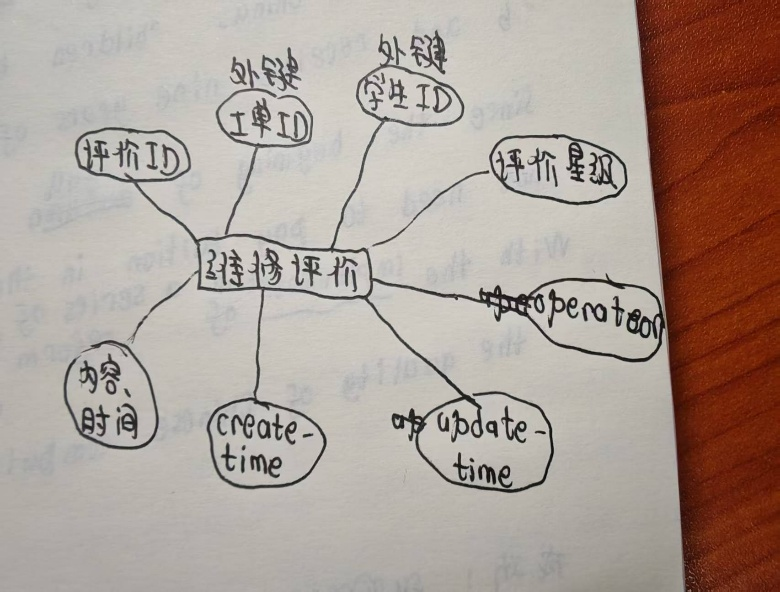 外键
外键
学生ID
工单ID
评价ID
评价星级
维修评价
operator
内容、
时间
create-
time
update-
time